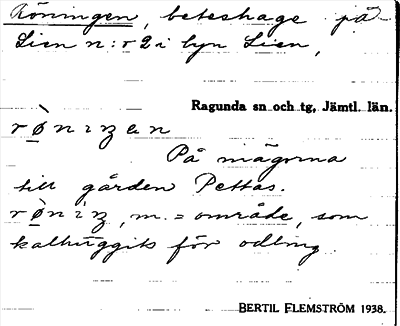 Röningen, beteshage på
Lien n:r 2 i byn Lien,
Ragunda sn och tg, Jämtl. län.
rø̀niŋen
På ägorna
till gården Pettas.
rø̀niŋ, m. = område, som
kalhuggits för odling.
BERTIL FLEMSTRÖM 1938.